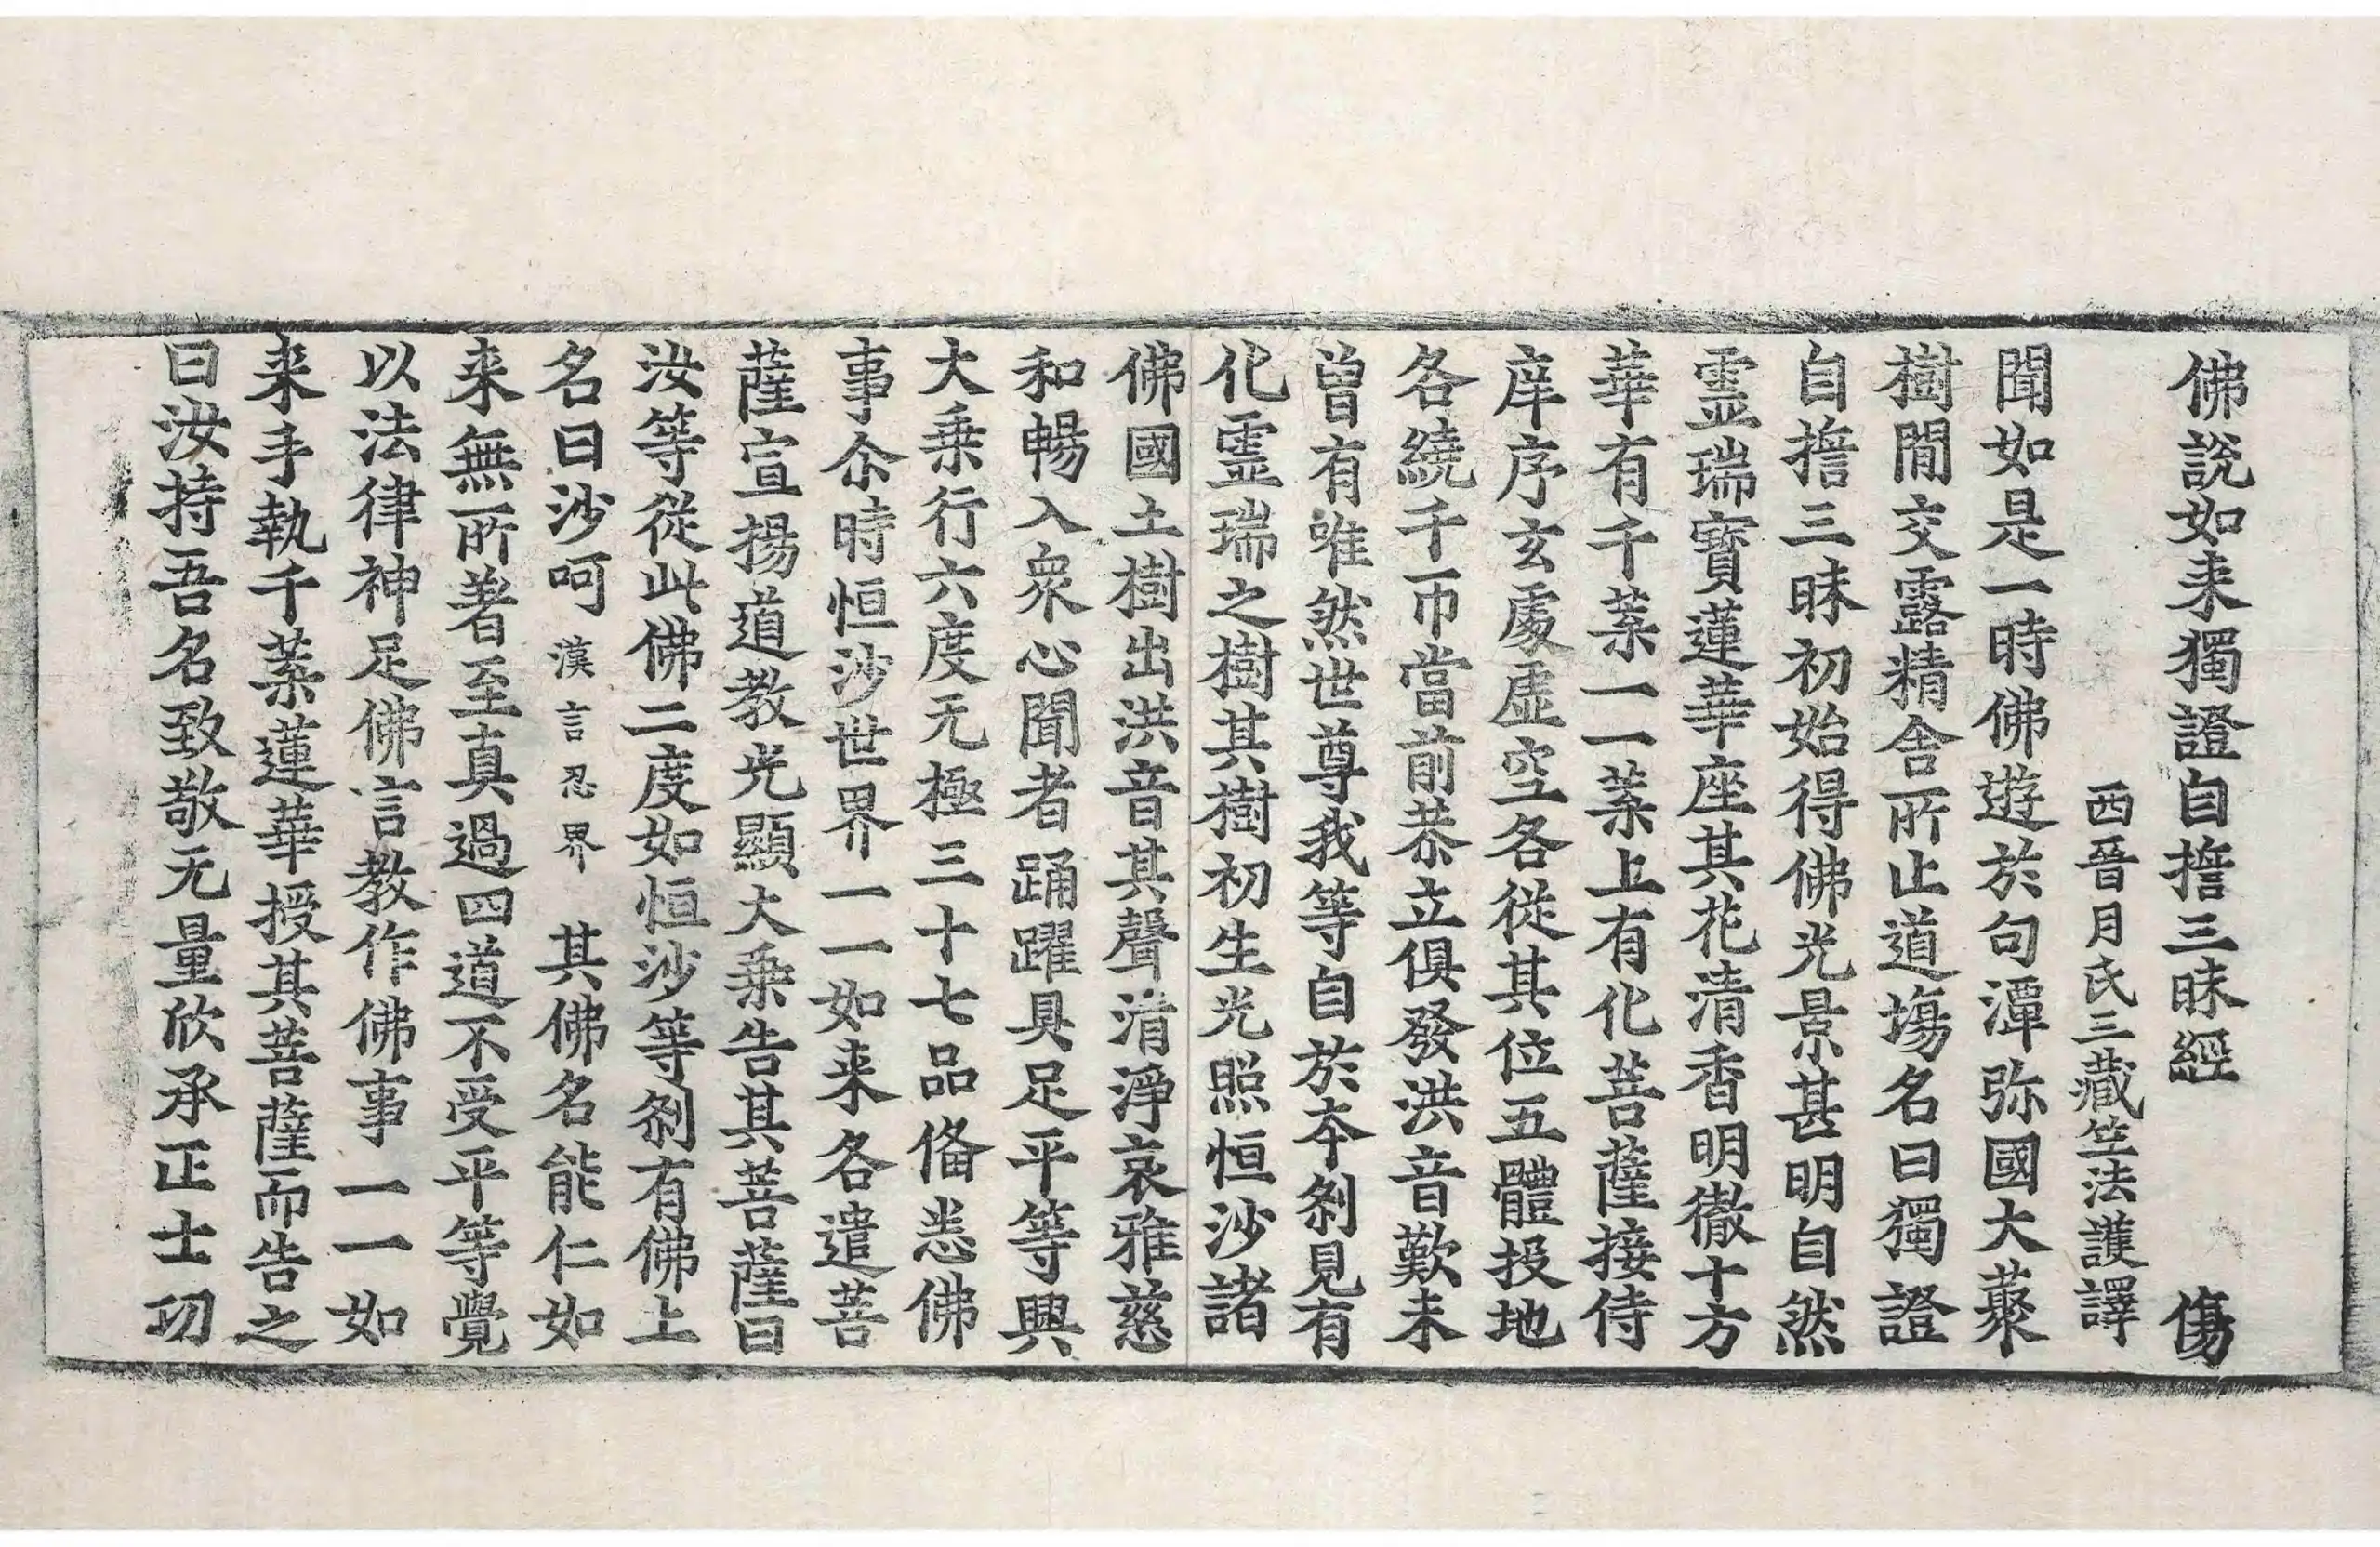 佛說如来獨證自擔三昧經 傷
西晉月氏三藏竺法護譯
聞如是一時佛遊於句潭弥國大藂
樹閒交露精舍所止道場名曰獨證
自擔三昧初始得佛光景甚明自然
靈瑞寶蓮華座其花清香明徹十方
華有千葉一一葉上有化菩薩接侍
庠序玄處虛空各從其位五體投地
各繞千帀當前恭立俱發洪音歎未
曾有唯然世尊我等自於本剎見有
化靈瑞之樹其樹初生光照恒沙諸
佛國土樹出洪音其聲清淨哀雅慈
和暢入衆心聞者踊躍具足平等興
大乗行六度无極三十七品俻悉佛
事尒時恒沙世界一一如来各遣菩
薩宣揚道教光顯大乗告其菩薩曰
汝等從此佛二度如恒沙等剎有佛上
名曰沙呵 漢言忍界 其佛名能仁如
来無所著至真過四道不受平等覺
以法律神足佛言教作佛事一一如
来手執千葉蓮華授其菩薩而告之
曰汝持吾名致敬无量欣承正士功